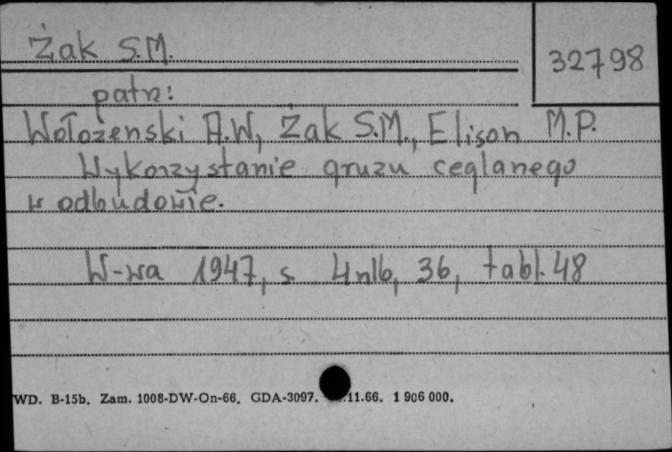 Żak S.M.
32798
patrz:
Wołożenski A.W, Żak S.M., Elison M.P.
Wykorzystanie gruzu ceglanego
w odbudowie.
W-wa 1947, s. 4nlb, 36, tabl. 48
WD. B-15b. Zam. 1008-DW-On-66. GDA-3097. .11.66. 1 906 000.